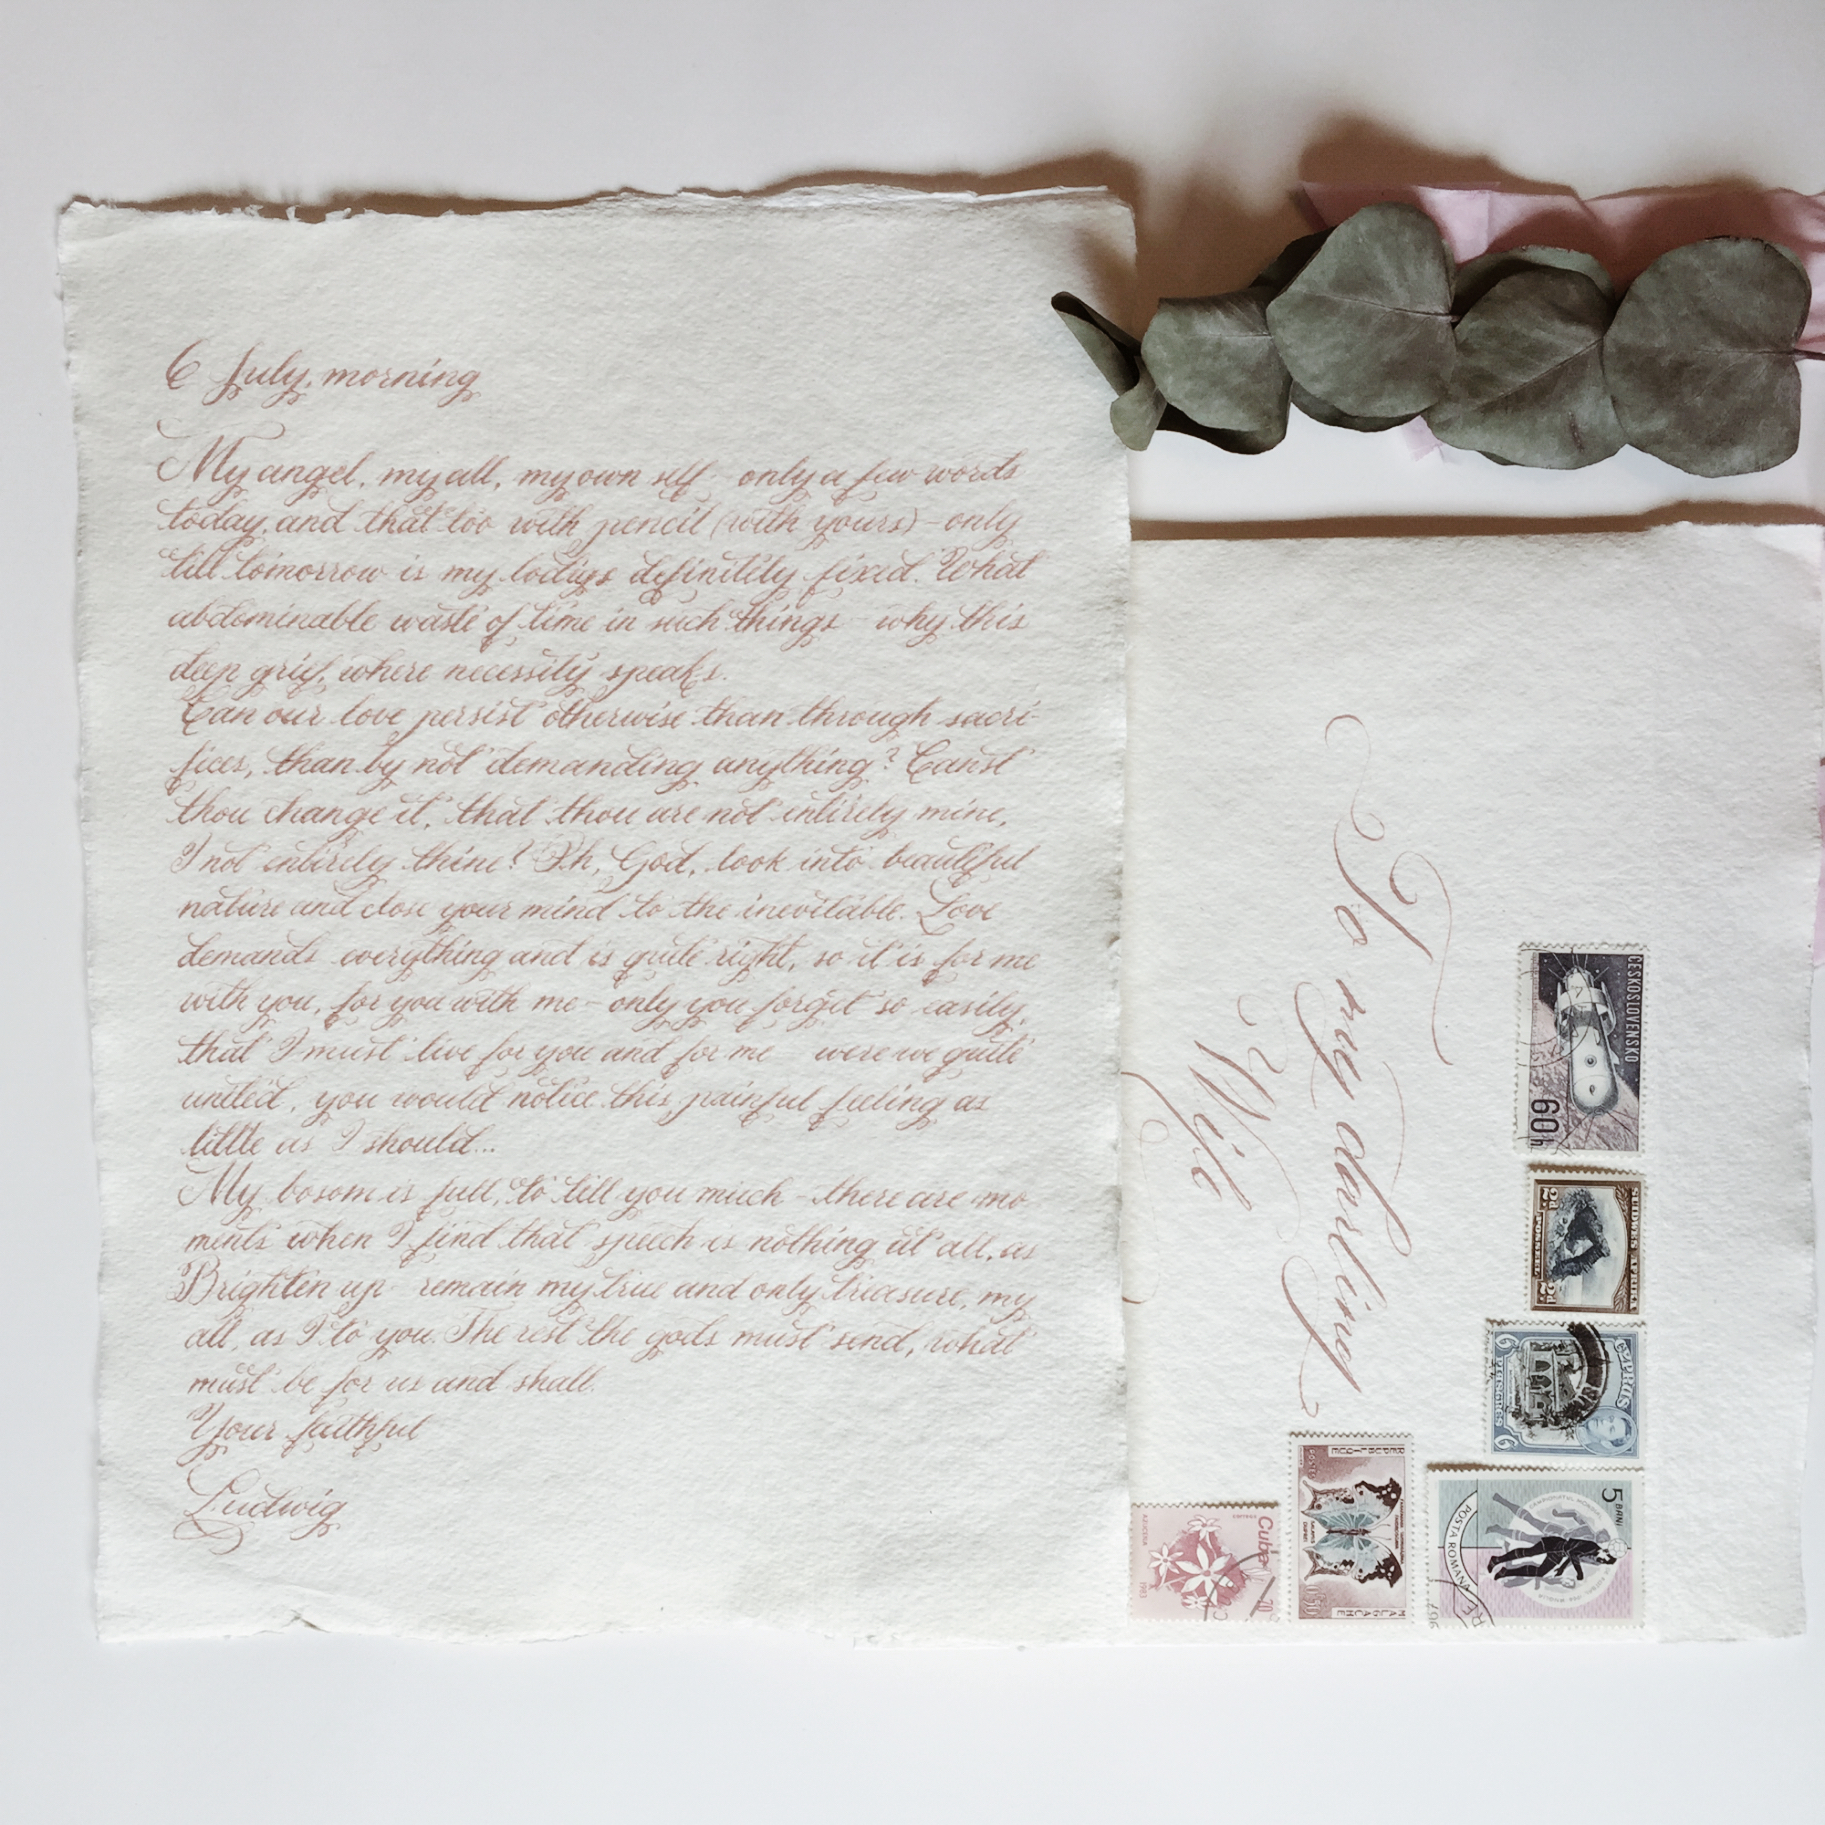 6 July, morning
My angel, my all, my own self - only a few words
today, and that too with pencil (with yours) - only
till tomorrow is my lodigs definitily fixed. What
abdominable waste of time in such things - why this
deep grief, where necessity speaks.
Can our love persist otherwise than through sacri-
fices, than by not demanding anything? Canst
thou change it, that thou are not entirely mine,
I not entirely thine? Oh, God, look into beautiful
nature and close your mind to the inevitable. Love
demands everything and is quite right, so it is for me
with you, for you with me - only you forget so easily,
that I must live for you and for me - were we quite
united, you would notice this painful feeling as
little as I should...
My bosom is full, to tell you much - there are mo-
ments when I find that speech is nothing at all, as
Brighten up - remain my true and only treasure, my
all, as I to you. The rest the gods must send, what
must be for us and shall.
Your faithful
Ludwig
To my darling
Wife
CESKOSLOVENSKO
60h
SUIDWES AFRIKA
2d. POSSEËL 2d.
CYPRUS
6 PIASTRES 6
5 BANI
POSTA ROMANA
REPUBLIQUE
POSTES
MALGACHE
Cuba
CORREOS
AZUCENA
1983